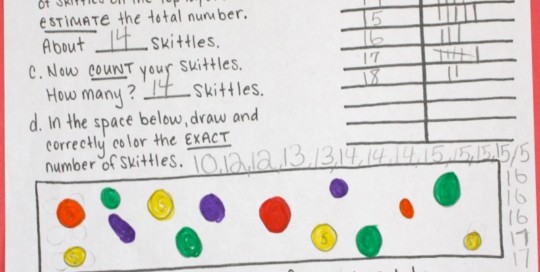 ESTIMATE the total number.
About 14 Skittles.
c. Now COUNT your Skittles.
How many? 14 Skittles.
d. In the space below, draw and
correctly color the EXACT
number of Skittles.
15
16
17
18
10,12,12,13,13,14,14,14,15,15,15,15
16
16
16
17
17
S
S
S